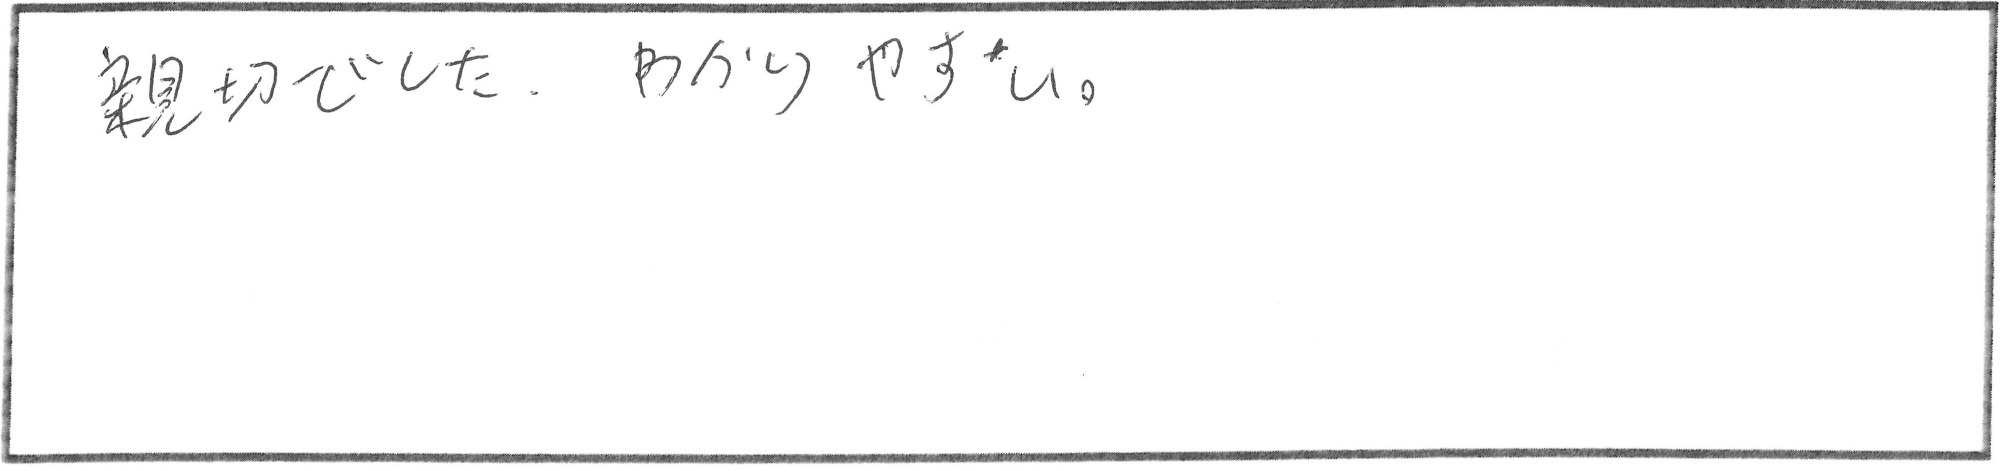 親切でした. わかりやすい。